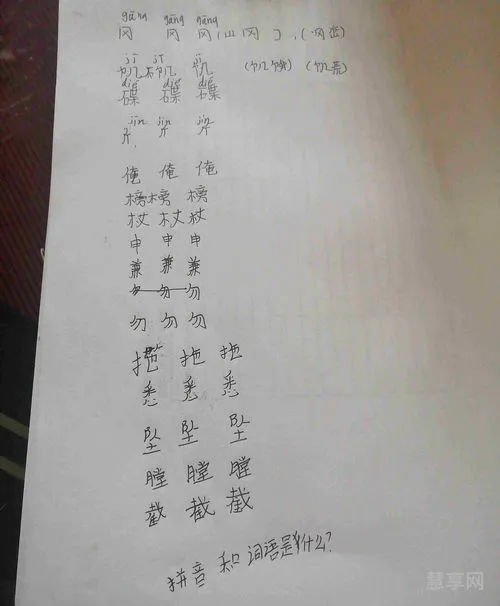 gāng gāng gāng
冈 冈 冈(山冈)、(冈峦)
jī jī jī
饥 饥 饥 (饥饿) (饥荒)
dié dié dié
碟 碟 碟
jīn jin jin
斤 斤 斤
俺 俺 俺
榜 榜 榜
杖 杖 杖
申 申 申
兼 兼 兼
勿 勿 勿
勿 勿 勿
拖 拖
悉 悉 悉
坠 坠 坠
膛 膛 膛
截 截 截
拼音和词语是什么?
慧享网